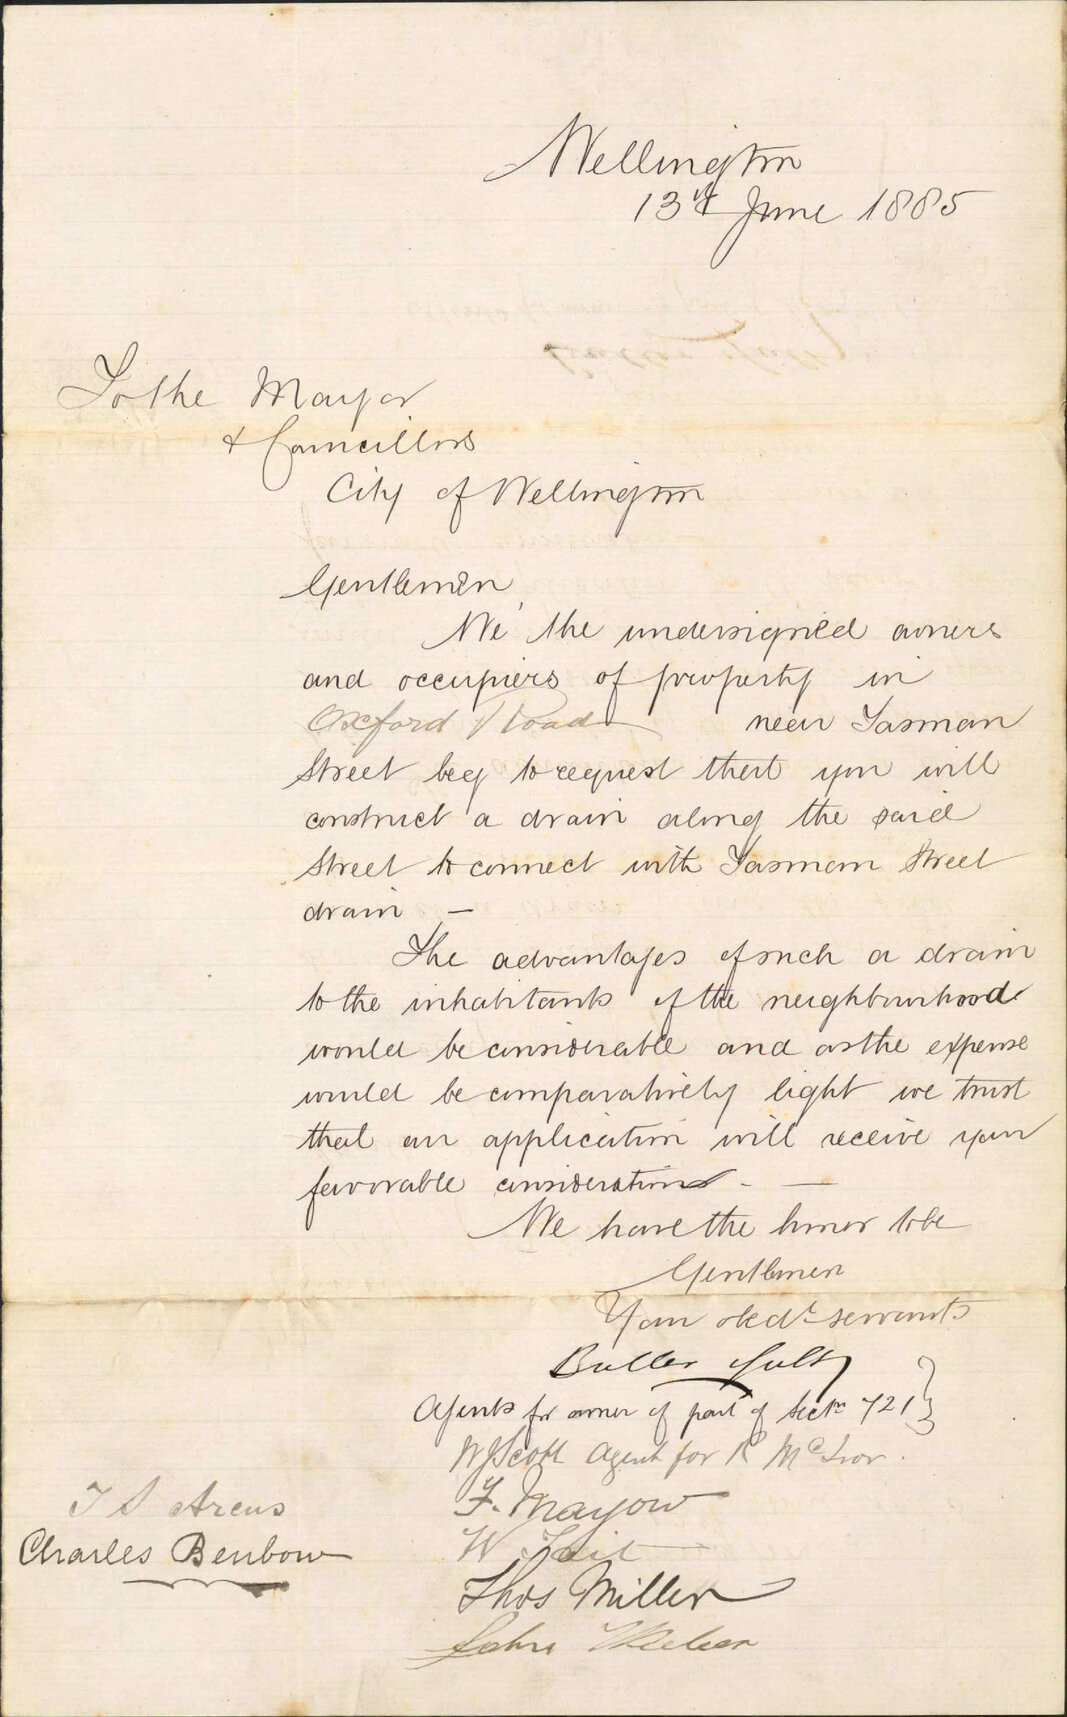 Wellington
13th June 1885
To the Mayor
& Councillors
City of Wellington
Gentlemen,
We the undersigned owners
and occupiers of property in
Oxford Road near Tasman
Street beg to request that you will
construct a drain along the said
Street to connect with Tasman Street
drain —
The advantages of such a drain
to the inhabitants of the neighbourhood
would be considerable and as the expense
would be comparatively light we trust
that our application will receive your
favorable consideration. —
We have the honor to be
Gentlemen
Your obdt servants
Buller
Agents for owner of part of Sectn 721
W J Scott Agent for R
F. Mayow
W Tait
Thos Miller
John
T S Arcus
Charles Benbow